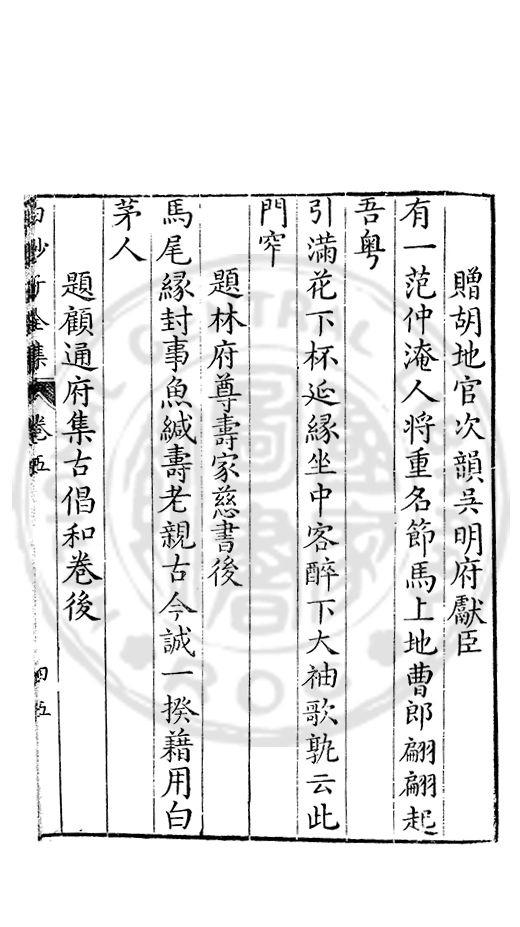 贈胡地官次韻吳明府獻臣
有一范仲淹人将重名節馬上地曹郎翩翩起
吾粤
引滿花下杯延緣坐中客醉下大袖歌孰云此
門窄
題林府尊壽家慈書後
馬尾緣封事魚緘壽老親古今誠一揆藉用白
茅人
題顧通府集古倡和卷後
白沙子全集 卷五 四五